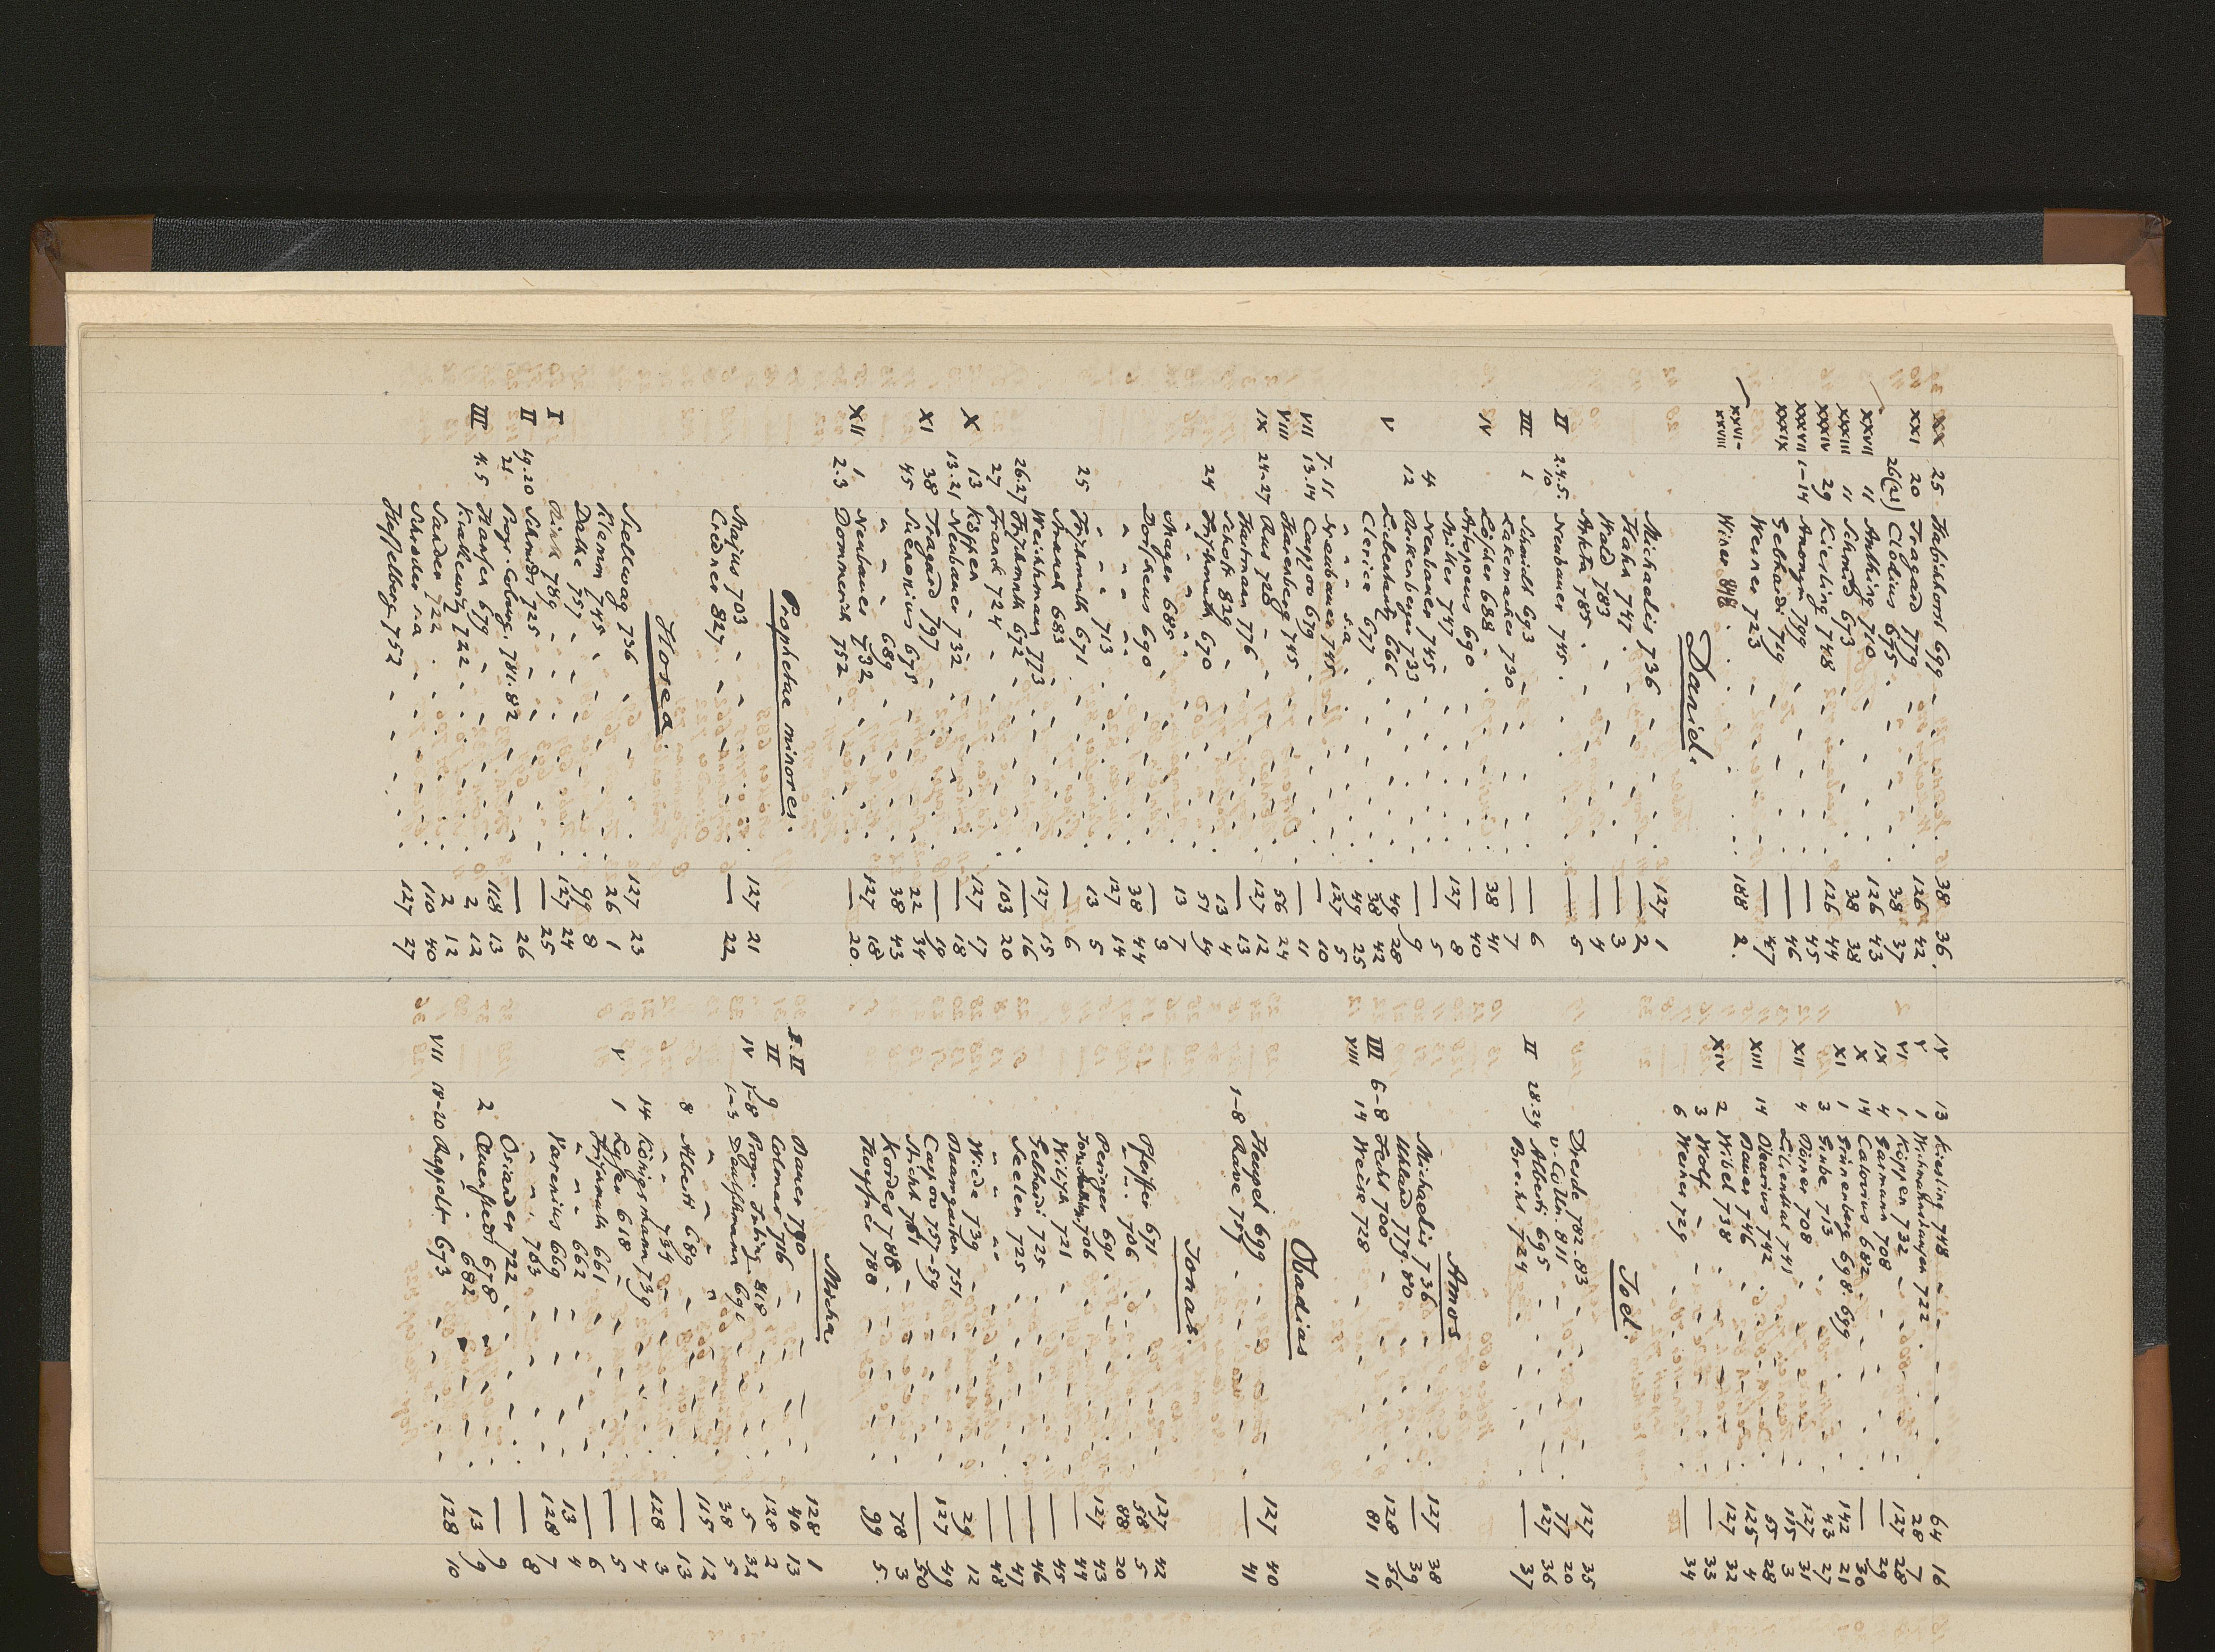 XX 25 Habichhorst 699 38 36.
XXI 20 Tragard 779 126 42
26(2) Clodius 675 38 37
XXVII 11 Anthing 710 126 43
XXXIII 11 Schmid 673 38 38
XXXIV 29 Kiesling 748 126 44
XXXVII 1-14 Anonym 799 — 45
XXXIX Gebhardi 719 — 46
Werner 723 — 47
XXVI-XXVIII Wiser 818 188 2.
Daniel.
Michaelis 736 127 1
Hahn 747 — 2
Wald 783 — 3
785 — 4
II 2.4.5.10 Neubauer 745 — 5
III 1 Schmidt 693 — 6
Lakemacher 730 — 7
IV Löscher 688 38 41
690 — 40
Müller 747 127 8
4 Neubauer 745 — 5
12 733 — 9
V Liebentantz 666 49 28
Clerica 677 38 42
" " " s.a. 49 25
7.11 Neubauer 745 127 5
VII 13.14 Carpzov 679 — 10
VIII Harenberg 745 — 11
IX 24-27 Rus 728 56 24
Hartman 776 127 12
Scholtz 829 — 13
24 Frischmuth 670 13 4
" " " 51 49
Mayer 685 13 7
Dorscheus 690 — 3
" " " 38 44
" " " 713 127 14
25 Frischmuth 671 13 5
Strauch 683 — 6
Weichhman 773 127 15
26.27 Frischmuth 672 — 16
27 Franck 724 103 20
X 13 Köppen 127 17
13.21 Neubauer 732 — 18
XI 38 Tragard 797 — 19
45 Suenonius 675 22 34
" " " 689 38 43
XII 1. Neubauer 732 127 18
2.3 Dommerich 752 — 20.
Prophetae minores.
Majus 703 127 21
Credner 827 — 22
Hosea.
Stellwag 736 127 23
Klemm 745 26 1
Dathe 757 99 8
I Pink 789 127 24
II 19.20 Schmidt 725 — 25
21 Progr. Coburg. 781.82 — 26
III 4.5 Hansen 679 118 13
Krakewitz 722 2 12
Sander 722 2 12
Schröder s.a 110 40
Hasselberg 752 127 27
IV 13 Kiesling 748 64 16
V 1 722 28 7
VI 1. Köppen 732 127 28
IX 4 Garmann 708 — 29
X 14 Calovius 682 — 30
XI 1 Grünenberg 698.699 142 21
3 Grube 713 43 27
XII 4 708 127 31
Lilienthal 741 115 3
XIII 14 Olearius 742 57 28
Bauer 746 125 4
XIV 2 Wibel 738 127 32
3 Wolf — 33
6 Weiher 729 — 34
Joel.
Dresde 782.83 127 35
v. Cölln 811 77 20
II 28.29 Alberti 695 127 36
724 — 37
Amos
Michaelis 736 127 38
Uhland 779.80 — 39
III 6-8 Fecht 700 128 56
VIII 14 Weise 728 81 11
Obadias
699 127 40
1-8 Rave 757 — 41
Jonas.
Pfeiffer 671 127 42
" " " 706 58 5
Peringer 691 88 20
706 127 43
Wilisch 721 — 44
Gebhardi 725 — 45
Seelen 725 — 46
" " " — 47
Wiede 739 — 48
Baumgarten 751 29 12
Carpzov 757-59 127 49
Sticht 761 — 50
Kordes 788 78 3
Hoepfner 788 99 5.
Micha.
Bauer 790 128 1
I. II Colmar 716 40 13
II 9 Progr. Tubing. 818 128 2
IV 1-8 5 32
1-3 691 38 5
" " " 115 12
8 Alberti 689 — 13
" " 734 128 3
14 Königsmann 739 — 4
V 1 Leyser 618 — 5
Frischmuth 661 — 6
" " " 662 13 4
Varenius 669 128 7
" " 703 — 8
Osiander 722 — 9
2 Quenstedt 678 13 9
" " " 682
VII 18-20 Rappolt 673 128 10